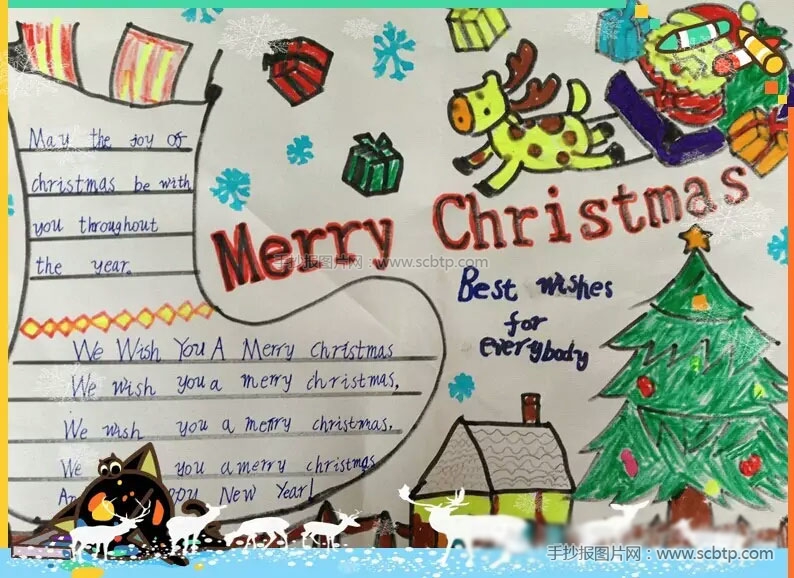 May the joy of
christmas be with
you throughout
the year.
Merry Christmas
手抄报图片网：www.scbtp.com
Best wishes
for
everybody
We Wish You A Merry Christmas
We wish you a merry christmas,
We wish you a merry christmas,
We you a merry christmas
New Year!
手抄报图片网：www.scbtp.com